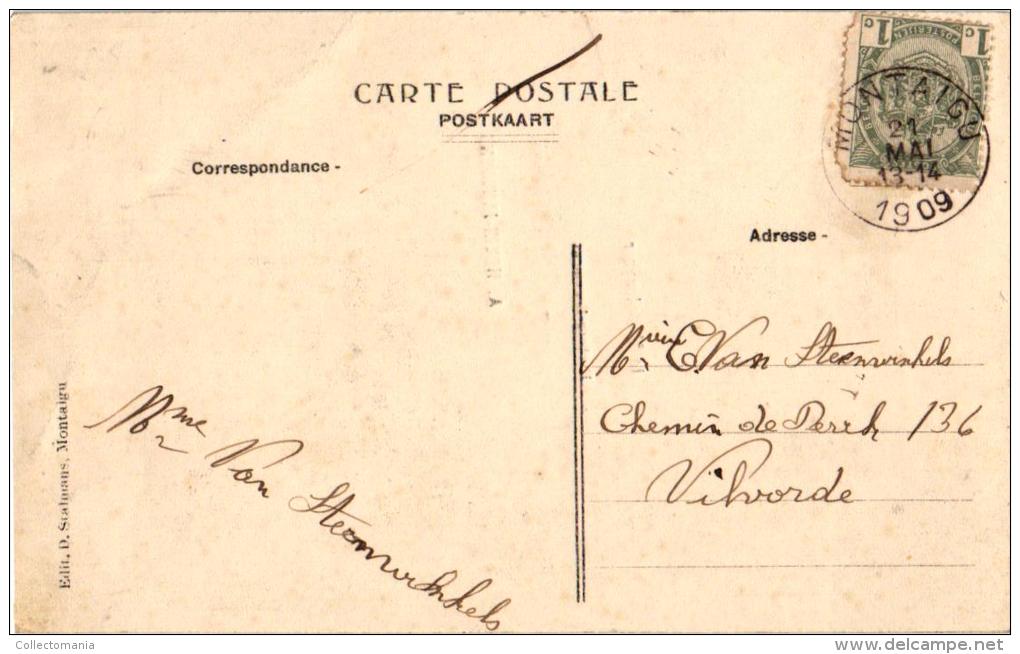 CARTE POSTALE
POSTKAART
Correspondance -
Adresse -
1c 1c
MONTAIGU
21
MAI
13-14
1909
C. Van Steenwinkels
Chemin de Perck 136
Vilvorde
Mme Van Steenwinkels
Edit. D. Stalmans, Montaigu
Collectomania
delcampe.net